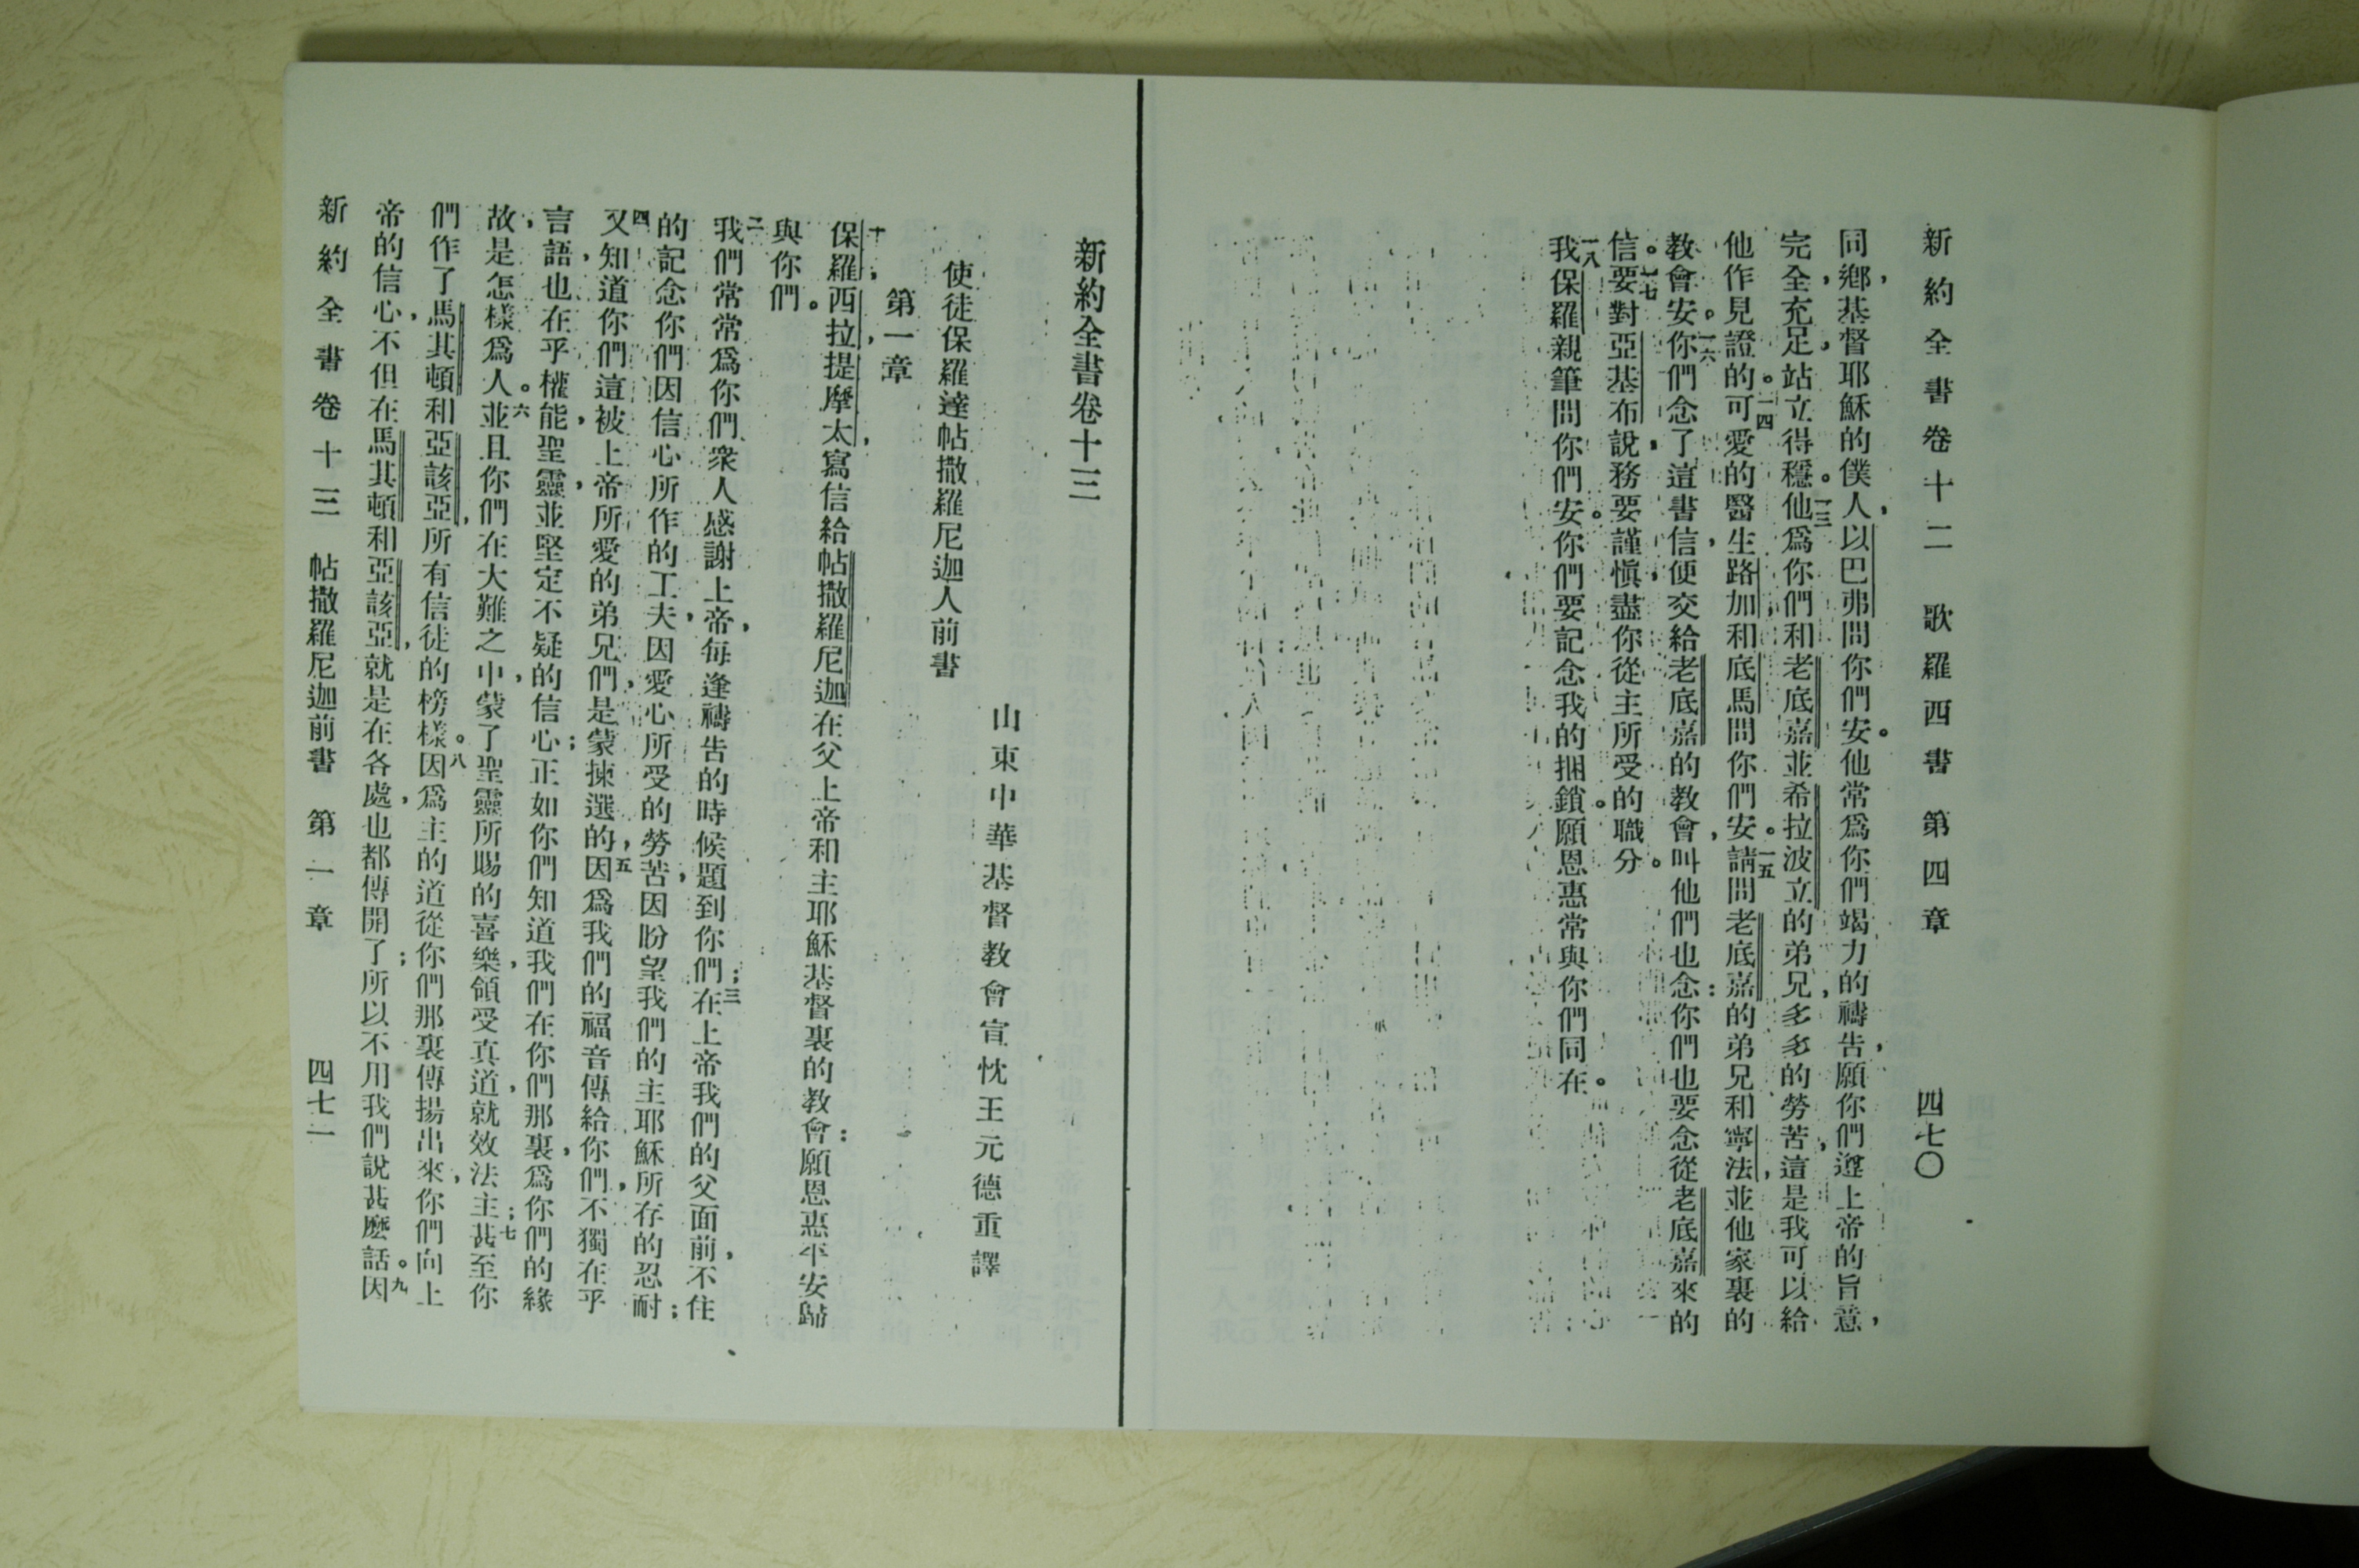 新約全書卷十二 歌羅西書 第四章 四七〇
同鄉，基督耶穌的僕人，以巴弗問你們安。他常爲你們竭力的禱告，願你們遵上帝的旨意，
完全充足，站立得穩。一三他爲你們和老底嘉並希拉波立的弟兄，多多的勞苦，這是我可以給
他作見證的。一四可愛的醫生路加和底馬問你們安。一五請問老底嘉的弟兄和寧法，並他家裏的
教會安。一六你們念了這書信，便交給老底嘉的教會，叫他們也念：你們也要念從老底嘉來的
信。一七要對亞基布說，務要謹愼，盡你從主所受的職分。
一八我保羅親筆問你們安。你們要記念我的捆鎖。願恩惠常與你們同在。
新約全書卷十三
山東中華基督教會宣忱王元德重譯
使徒保羅達帖撒羅尼迦人前書
第一章
保羅，西拉，提摩太，寫信給帖撒羅尼迦在父上帝和主耶穌基督裏的教會：願恩惠平安歸
與你們。
二我們常常爲你們衆人感謝上帝，每逢禱告的時候題到你們；三在上帝我們的父面前，不住
的記念你們因信心所作的工夫，因愛心所受的勞苦，因盼望我們的主耶穌所存的忍耐；
四又知道你們這被上帝所愛的弟兄們，是蒙揀選的，五因爲我們的福音傳給你們，不獨在乎
言語，也在乎權能，聖靈，並堅定不疑的信心；正如你們知道我們在你們那裏，爲你們的緣
故，是怎樣爲人。六並且你們在大難之中，蒙了聖靈所賜的喜樂，領受真道，就效法主；七甚至你
們作了馬其頓和亞該亞，所有信徒的榜樣。八因爲主的道從你們那裏傳揚出來，你們向上
帝的信心，不但在馬其頓和亞該亞，就是在各處，也都傳開了；所以不用我們說甚麽話。九因
新約全書卷十三 帖撒羅尼迦前書 第一章 四七一